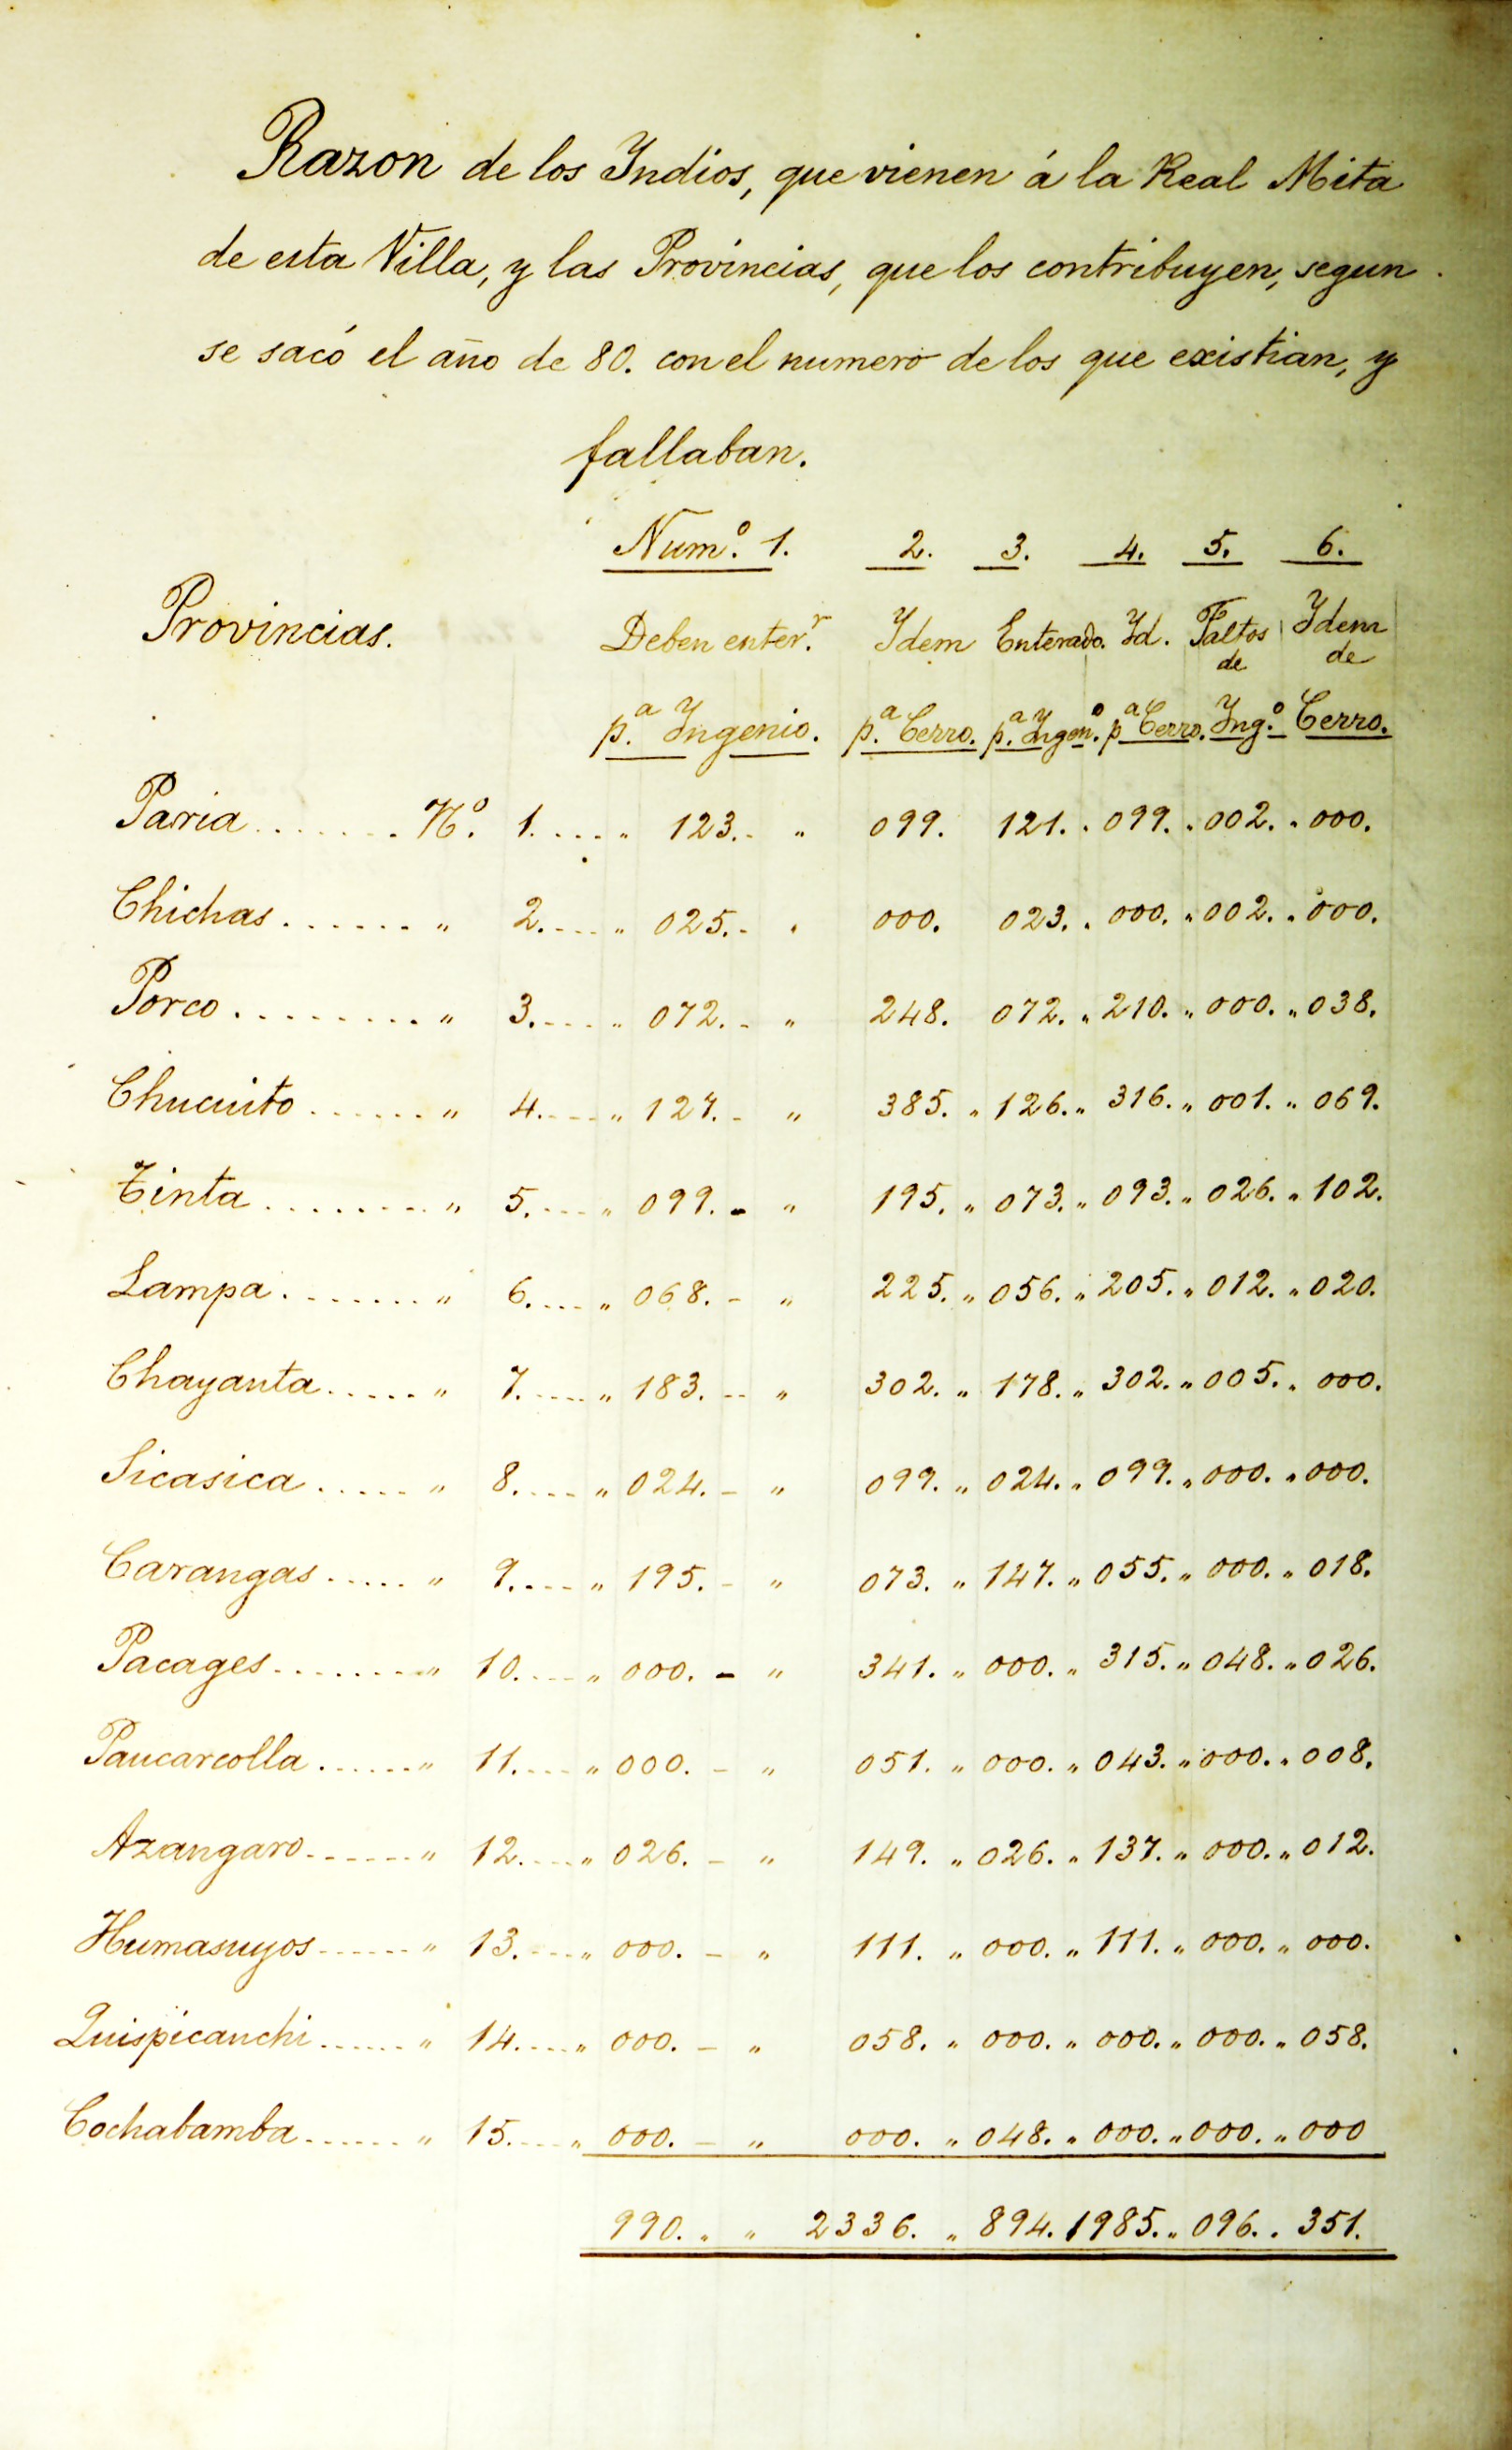 Razon de los Yndios, que vienen á la Real Mita
de esta Villa, y las Provincias, que los contribuyen, segun
se sacó el año de 80. con el numero de los que existian, y
fallaban.
Num.º 1. 2. 3. 4. 5. 6.
Provincias. Deben enter.r Ydem Enterado. Yd. Faltos de Ydem de
p.a Yngenio. p.a Cerro. p.a Yngen.º p.a Cerro. Yng.º Cerro.
Paria ....... N.º 1. .... „ 123. - „ 099. 121. . 099. „ 002. „ 000.
Chichas ....... „ 2. .... „ 025. - . 000. 023. . 000. „ 002. „ 000.
Porco ......... „ 3. .... „ 072. - „ 248. 072. „ 210. „ 000. „ 038.
Chucuito ...... „ 4. .... „ 127. - „ 385. „ 126. „ 316. „ 001. „ 069.
Tinta ........ „ 5. .... „ 099. - „ 195. „ 073. „ 093. „ 026. „ 102.
Lampa ........ „ 6. .... „ 068. - „ 225. „ 056. „ 205. „ 012. „ 020.
Chayanta ..... „ 7. .... „ 183. -- „ 302. „ 178. „ 302. „ 005. „ 000.
Sicasica ..... „ 8. .... „ 024. - „ 099. „ 024. „ 099. „ 000. „ 000.
Carangas ..... „ 9. .... „ 195. - „ 073. „ 147. „ 055. „ 000. „ 018.
Pacages ........ „ 10. .... „ 000. - „ 341. „ 000. „ 315. „ 048. „ 026.
Paucarcolla ...... „ 11. .... „ 000. - „ 051. „ 000. „ 043. „ 000. „ 008.
Azangaro ...... „ 12. .... „ 026. - „ 149. „ 026. „ 137. „ 000. „ 012.
Humasuyos ...... „ 13. .... „ 000. - „ 111. „ 000. „ 111. „ 000. „ 000.
Quispicanchi ...... „ 14. .... „ 000. - „ 058. „ 000. „ 000. „ 000. „ 058.
Cochabamba ...... „ 15. .... „ 000. - „ 000. „ 048. „ 000. „ 000. „ 000
990. „ „ 2336. „ 894. 1985. „ 096. . 351.